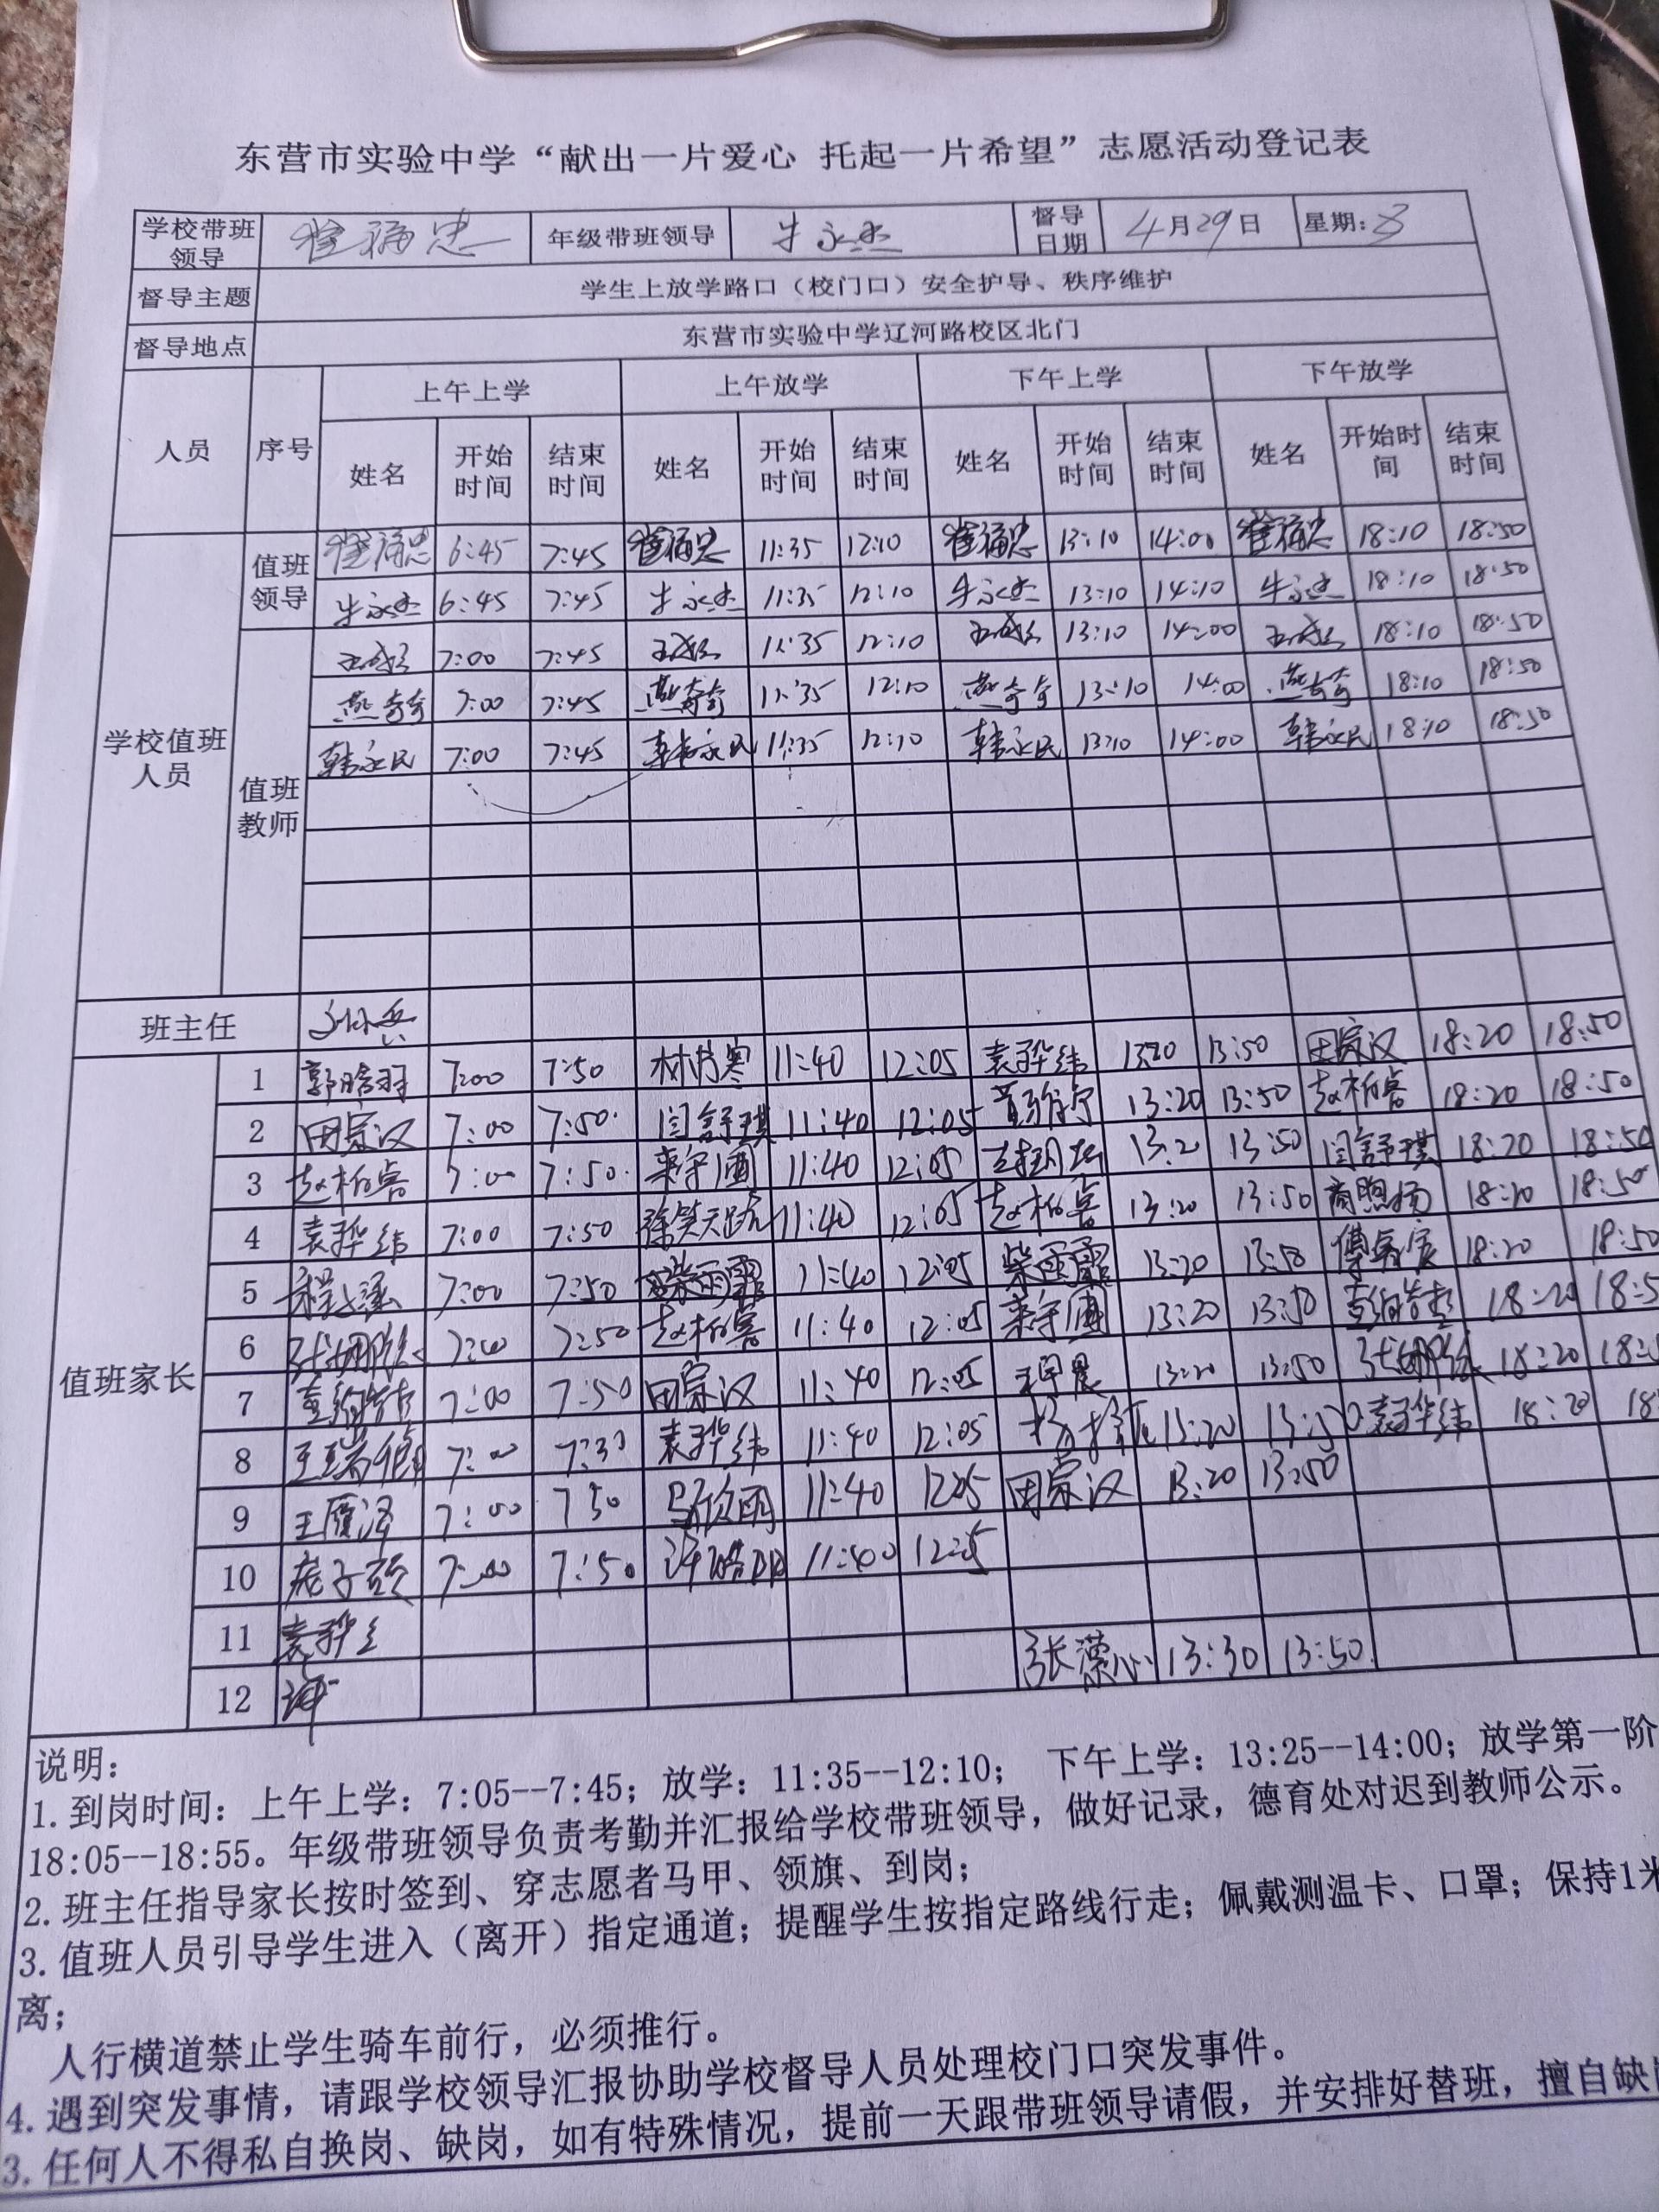 东营市实验中学“献出一片爱心 托起一片希望”志愿活动登记表
学校带班领导 崔福忠 年级带班领导 牛永杰 督导日期 4月29日 星期:3
督导主题 学生上放学路口（校门口）安全护导、秩序维护
督导地点 东营市实验中学辽河路校区北门
人员 序号 上午上学 上午放学 下午上学 下午放学
姓名 开始时间 结束时间 姓名 开始时间 结束时间 姓名 开始时间 结束时间 姓名 开始时间 结束时间
学校值班人员
值班领导 崔福忠 6:45 7:45 崔福忠 11:35 12:10 崔福忠 13:10 14:00 崔福忠 18:10 18:50
牛永杰 6:45 7:45 牛永杰 11:35 12:10 牛永杰 13:10 14:10 牛永杰 18:10 18:50
值班教师 7:00 7:45 11:35 12:10 13:10 14:00 18:10 18:50
燕奇奇 7:00 7:45 燕奇奇 11:35 12:10 燕奇奇 13:10 14:00 燕奇奇 18:10 18:50
韩永民 7:00 7:45 韩永民 11:35 12:10 韩永民 13:10 14:00 韩永民 18:10 18:50
班主任
值班家长
1 郭晗羽 7:00 7:50 11:40 12:05 袁骅纬 13:20 13:50 田家汉 18:20 18:50
2 田家汉 7:00 7:50 闫舒琪 11:40 12:05 13:20 13:50 赵柏睿 18:20 18:50
3 赵柏睿 7:00 7:50 11:40 12:05 13:20 13:50 闫舒琪 18:20 18:50
4 袁骅纬 7:00 7:50 徐笑天 11:40 12:05 赵柏睿 13:20 13:50 商照扬 18:20 18:50
5 7:00 7:50 柴雨霏 11:40 12:05 柴雨霏 13:20 13:50 18:20 18:50
6 7:00 7:50 赵柏睿 11:40 12:05 13:20 13:50 18:20 18:5
7 7:00 7:50 田家汉 11:40 12:05 13:20 13:50 18:20
8 王瑞 7:00 7:50 袁骅纬 11:40 12:05 13:20 13:50 袁骅纬 18:20 18
9 王雁泽 7:00 7 50 马欣雨 11:40 12:05 田家汉 13:20 13:50
10 7:00 7:50 11:40 12:05
11 袁骅
12 张潆心 13:30 13:50
说明：
1. 到岗时间：上午上学：7:05--7:45；放学：11:35--12:10； 下午上学：13:25--14:00；放学第一阶
18:05--18:55。年级带班领导负责考勤并汇报给学校带班领导，做好记录，德育处对迟到教师公示。
2. 班主任指导家长按时签到、穿志愿者马甲、领旗、到岗；
3. 值班人员引导学生进入（离开）指定通道；提醒学生按指定路线行走；佩戴测温卡、口罩；保持1米
离；
人行横道禁止学生骑车前行，必须推行。
4. 遇到突发事情，请跟学校领导汇报协助学校督导人员处理校门口突发事件。
3. 任何人不得私自换岗、缺岗，如有特殊情况，提前一天跟带班领导请假，并安排好替班，擅自缺